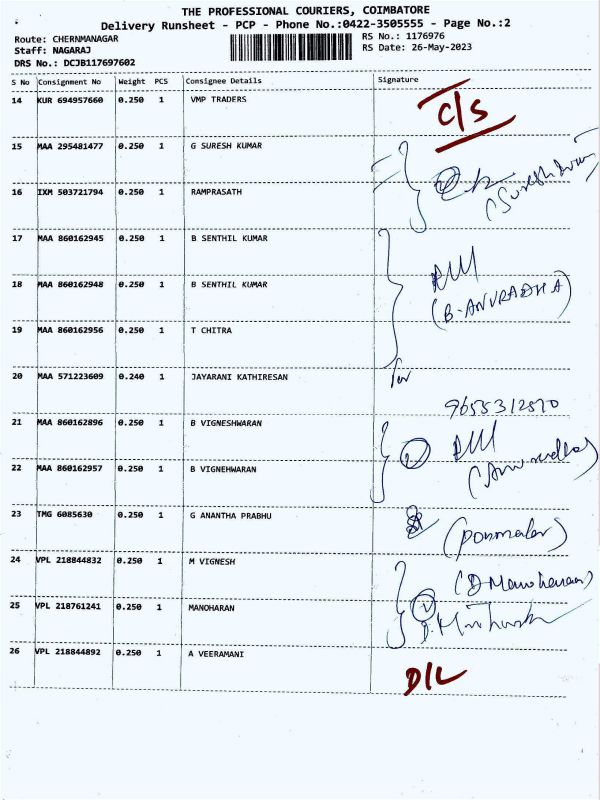 THE PROFESSIONAL COURIERS, COIMBATORE
Delivery Runsheet - PCP - Phone No.:0422-3505555 - Page No.:2
Route: CHERNMANAGAR
RS No.: 1176976
Staff: NAGARAJ
RS Date: 26-May-2023
DRS No.: DCJB117697602
S No Consignment No Weight PCS Consignee Details Signature
14 KUR 694957660 0.250 1 VMP TRADERS C/S
15 MAA 295481477 0.250 1 G SURESH KUMAR
16 IXM 503721794 0.250 1 RAMPRASATH
17 MAA 860162945 0.250 1 B SENTHIL KUMAR
18 MAA 860162948 0.250 1 B SENTHIL KUMAR
(B-ANURADHA)
19 MAA 860162956 0.250 1 T CHITRA
20 MAA 571223609 0.240 1 JAYARANI KATHIRESAN
9655312570
21 MAA 860162896 0.250 1 B VIGNESHWARAN
22 MAA 860162957 0.250 1 B VIGNEHWARAN
23 TMG 6085630 0.250 1 G ANANTHA PRABHU
(ponmalar)
24 VPL 218844832 0.250 1 M VIGNESH
25 VPL 218761241 0.250 1 MANOHARAN
26 VPL 218844892 0.250 1 A VEERAMANI
D/L